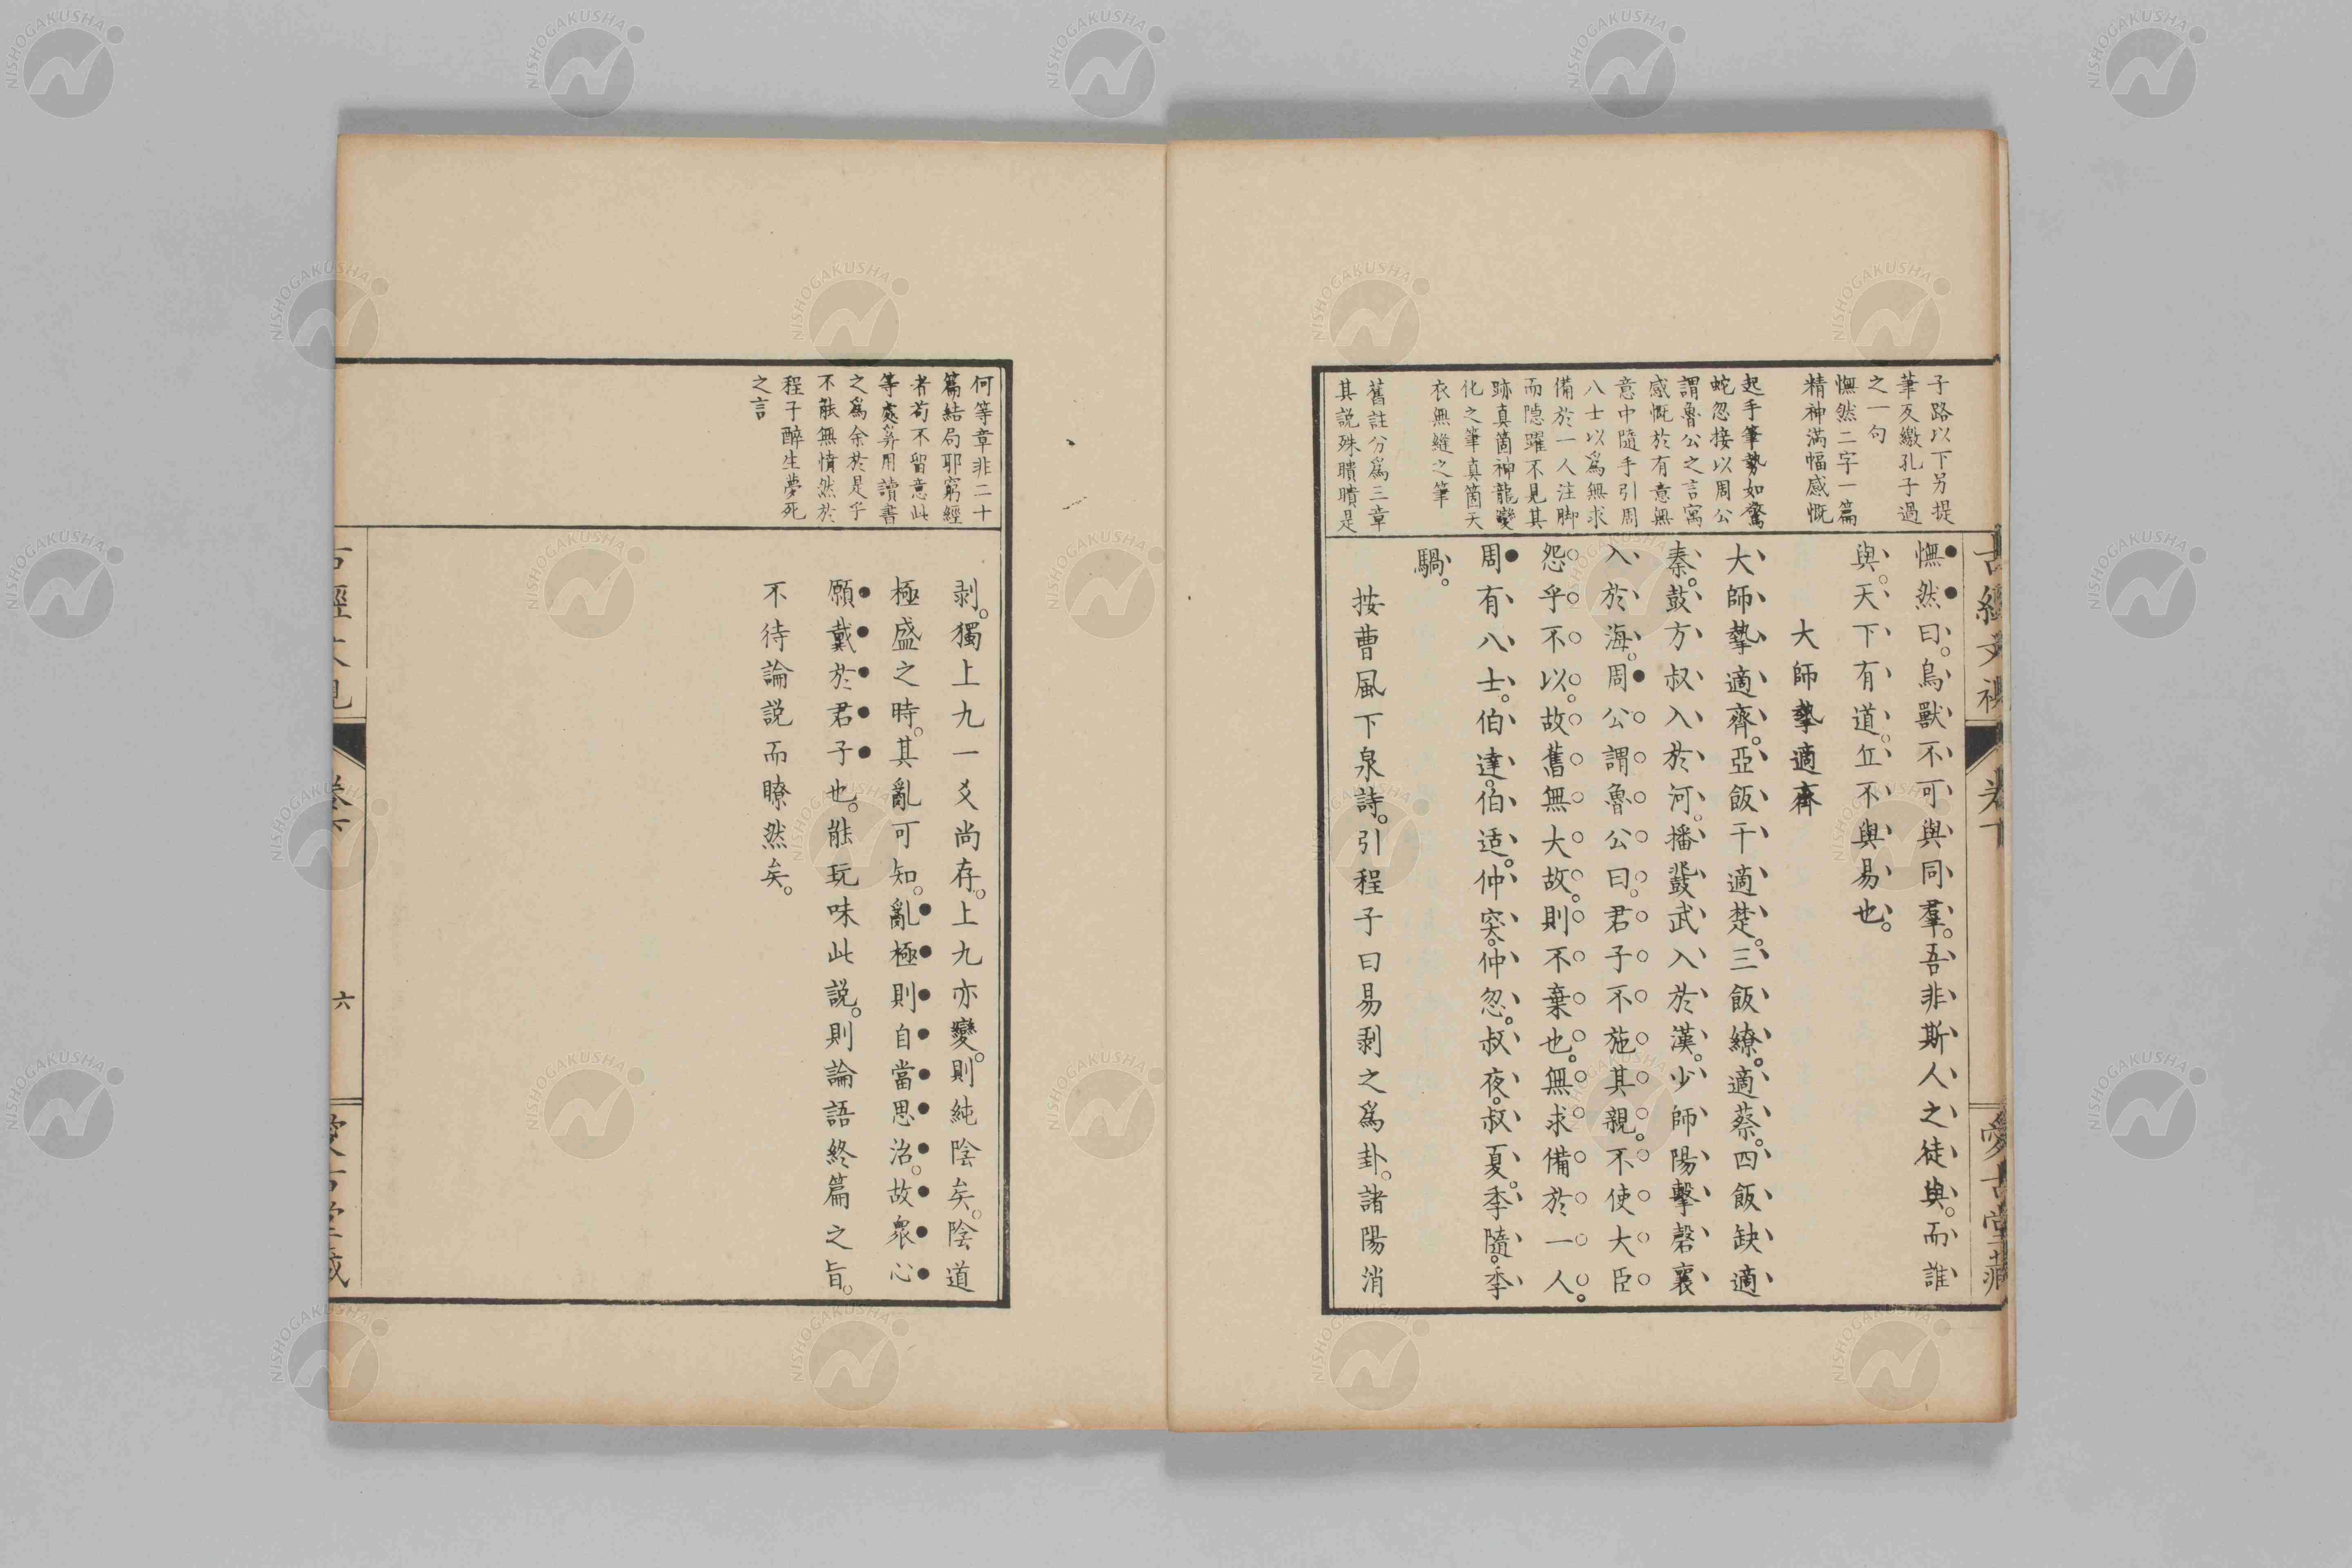 子路以下另提
筆反繳孔子過
之一句
憮然二字一篇
精神滿幅感慨
起手筆勢如驚
蛇忽接以周公
謂魯公之言寓
感慨於有意無
意中隨手引周
八士以爲無求
備於一人注脚
而隱躍不見其
跡真箇神龍變
化之筆真箇天
衣無縫之筆
舊註分爲三章
其説殊聵聵是
憮然曰。鳥獸不可與同羣。吾非斯人之徒與。而誰
與。天下有道。丘不與易也。
大師摯適齊
大師摯適齊。亞飯干適楚。三飯繚。適蔡。四飯缺適
秦。鼓方叔入於河。播鼗武入於漢。少師陽擊磬襄
入於海。周公謂魯公曰。君子不施其親。不使大臣
怨乎不以。故舊無大故。則不棄也。無求備於一人。
周有八士。伯達。伯适。仲突。仲忽。叔夜。叔夏。季隨。季
騧。
按曹風下泉詩。引程子曰易剥之爲卦。諸陽消
愛古堂藏
何等章非二十
篇結局耶窮經
者苟不留意此
等處筭用讀書
之爲余於是乎
不能無憤然於
程子醉生夢死
之言
剥。獨上九一爻尚存。上九亦變。則純陰矣。陰道
極盛之時。其亂可知。亂極則自當思治。故衆心
願戴於君子也。能玩味此説。則論語終篇之旨。
不待論説而瞭然矣。
六
NISHOGAKUSHA